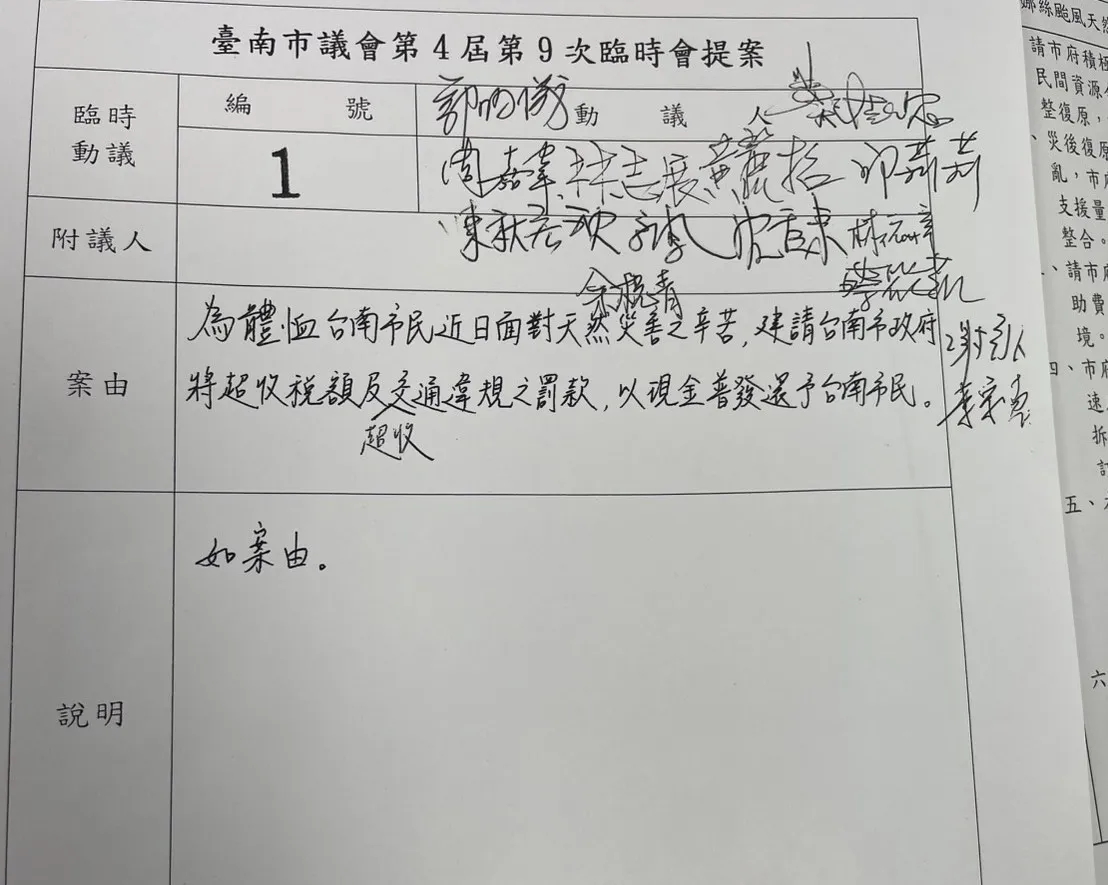 臺南市議會第4屆第9次臨時會提案
臨時動議
編號
動議人
1
周嘉韋 林志展 黃麗招 邱莉莉
附議人
余柷青
案由
為體恤台南市民近日面對天然災害之辛苦,建請台南市政府
將超收稅額及交通違規之罰款,以現金普發還予台南市民。
超收
李宗霖
說明
如案由。
娜絲颱風天然
請市府積極
民間資源
整復原,
、災後復原
亂,市府
支援量
整合。
、請市府
助費
境。
四、市府
速
拆
五、
六